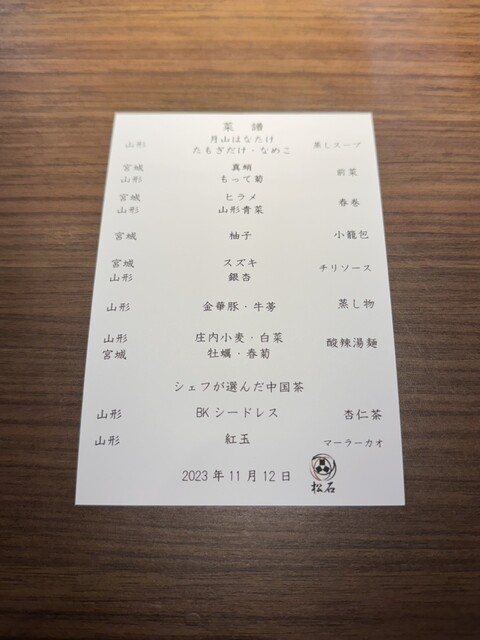 菜 譜
月山はなたけ
山形 たもぎだけ・なめこ 蒸しスープ
宮城 真蛸 前菜
山形 もって菊
宮城 ヒラメ 春巻
山形 山形青菜
宮城 柚子 小籠包
宮城 スズキ チリソース
山形 銀杏
山形 金華豚・牛蒡 蒸し物
山形 庄内小麦・白菜 酸辣湯麺
宮城 牡蠣・春菊
シェフが選んだ中国茶
山形 BKシードレス 杏仁茶
山形 紅玉 マーラーカオ
2023年11月12日
松石